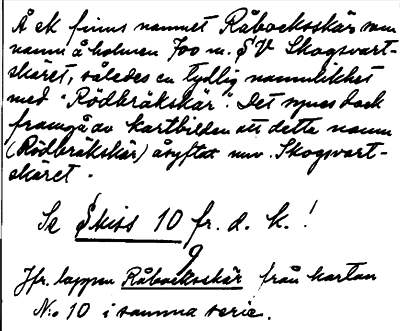 Å ek finns namnet Råbocksskär som
namn å holmen 700 m. S V Skogsvart-
skäret, således en tydlig namnlikhet
med "Rödbråkskär". Det synes dock
framgå av kartbilden att detta namn
(Rödbråkskär) åsyftat nuv. Skogsvart-
skäret.
Se Skiss 10 fr. d. k.!
9
Jfr. lappen Råbocksskär från kartan
No 10 i samma serie.